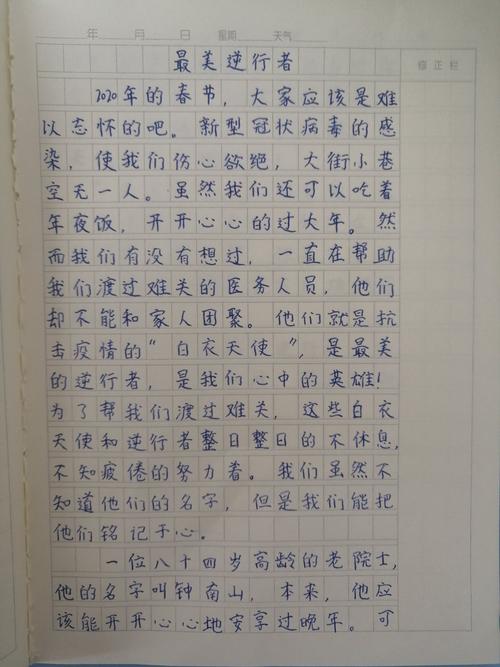 年 月 日 星期 天气
最美逆行者
修正栏
2020年的春节，大家应该是难
以忘怀的吧。新型冠状病毒的感
染，使我们伤心欲绝，大街小巷
空无一人。虽然我们还可以吃着
年夜饭，开开心心的过大年。然
而我们有没有想过，一直在帮助
我们渡过难关的医务人员，他们
却不能和家人团聚。他们就是抗
击疫情的“白衣天使”，是最美
的逆行者，是我们心中的英雄！
为了帮我们渡过难关，这些白衣
天使和逆行者整日整日的不休息，
不知疲倦的努力着。我们虽然不
知道他们的名字，但是我们能把
他们铭记于心。
一位八十四岁高龄的老院士，
他的名字叫钟南山，本来，他应
该能开开心心地安享过晚年。可